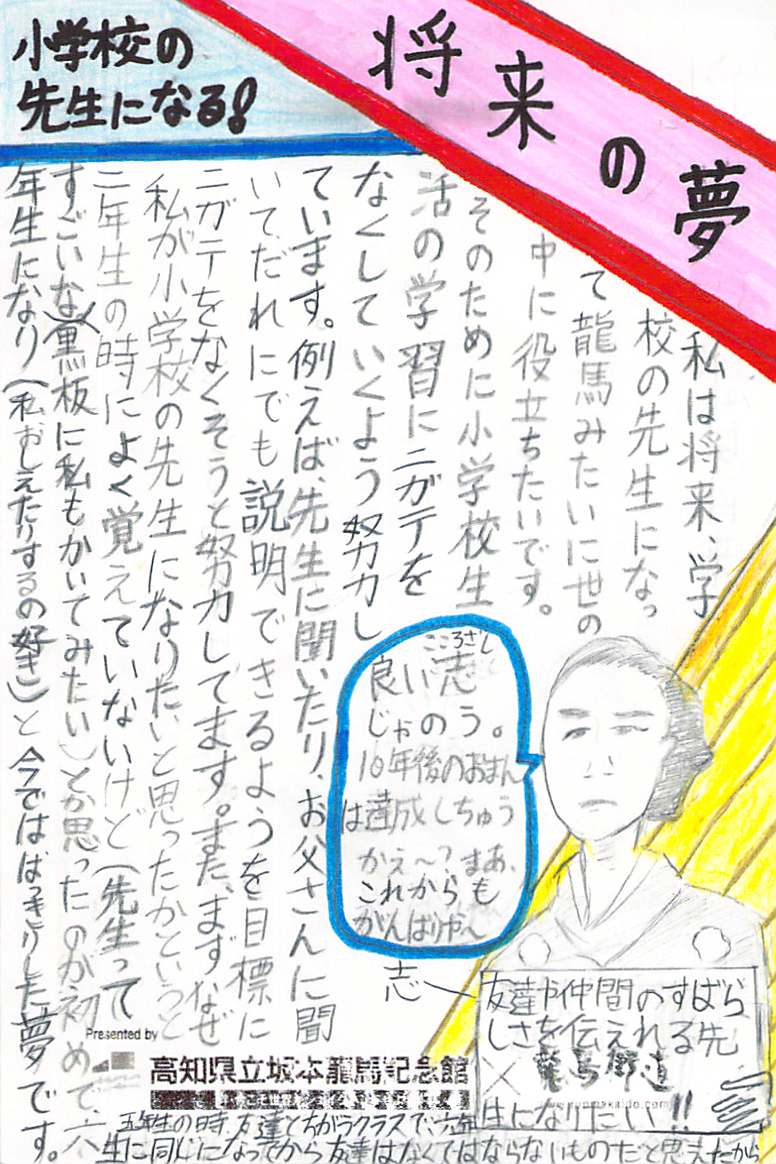 将来の夢
小学校の
先生になる!
私は将来、学
校の先生になっ
て龍馬みたいに世の
中に役立ちたいです。
そのために小学校生
活の学習にニガテを
なくしていくよう努力し
ています。例えば、先生に聞いたり、お父さんに聞
いてだれにでも説明できるようを目標に
ニガテをなくそうと努力してます。また、まずなぜ
私が小学校の先生になりたいと思ったかというと
二年生の時によく覚えていないけど(先生って
すごいな)(黒板に私もかいてみたい)とか思ったのが初めで、六
年生になり(私おしえたりするの好き)と今でははっきりした夢です。
こころざし
良い志
じゃのう。
10年後のおまん
は達成しちゅう
かえ〜?まあ、
これからも
がんばりや〜
志
友達や仲間のすばら
しさを伝えれる先
生になりたい!!
龍馬街道
Presented by
高知県立坂本龍馬記念館
五年生の時、友達とちがうクラスで、六年
生に同じになってから友達はなくてはならないものだと思えたから